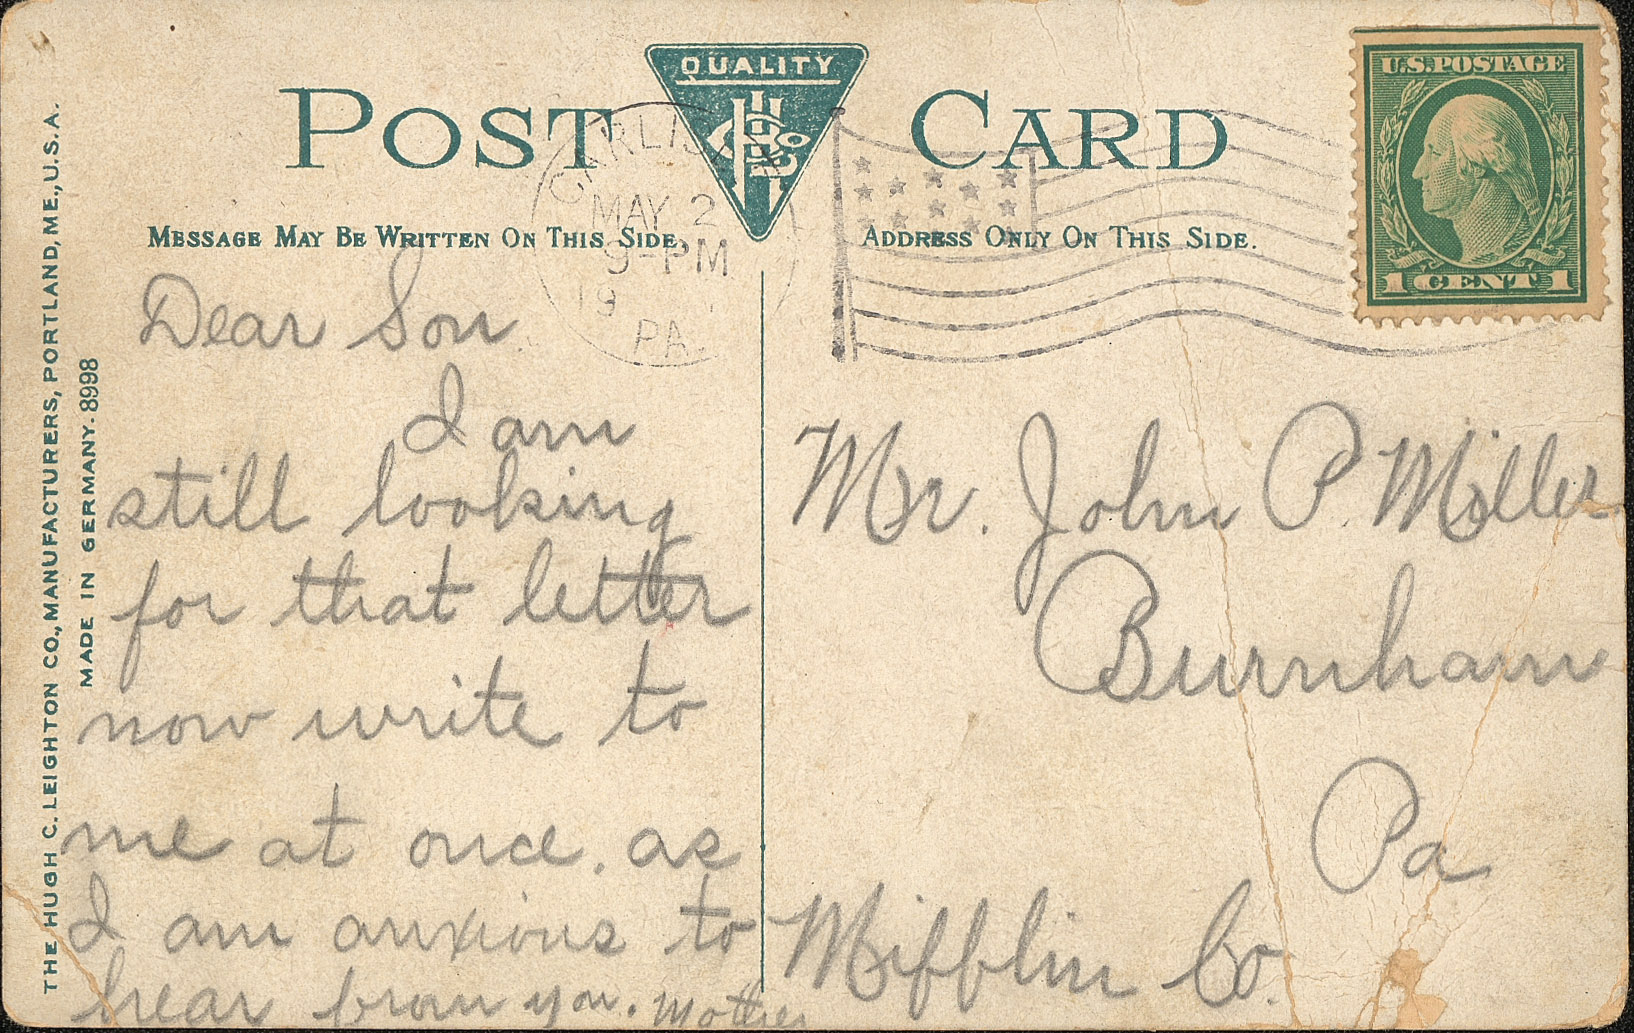 QUALITY
POST CARD
CARLISLE
MAY 2
9-PM
19
PA.
U.S. POSTAGE
1 CENT 1
MESSAGE MAY BE WRITTEN ON THIS SIDE.
ADDRESS ONLY ON THIS SIDE.
THE HUGH C. LEIGHTON CO., MANUFACTURERS, PORTLAND, ME., U.S.A.
MADE IN GERMANY. 8998
Dear Son
I am
still looking
for that letter
now write to
me at once. as
I am anxious to
hear from you. Mother
Mr. John P. Miller
Burnham
Pa
Mifflin Co.